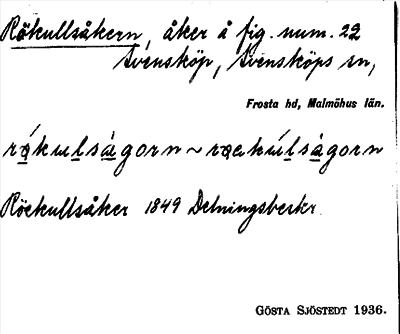 Rökullsåkern, åker å fig. num. 22
Svensköp, Svensköps sn,
Frosta hd, Malmöhus län.
rákulságorn ~ raekúlságorn
Röekullsåker 1849 Delningsbeskr.
GÖSTA SJÖSTEDT 1936.